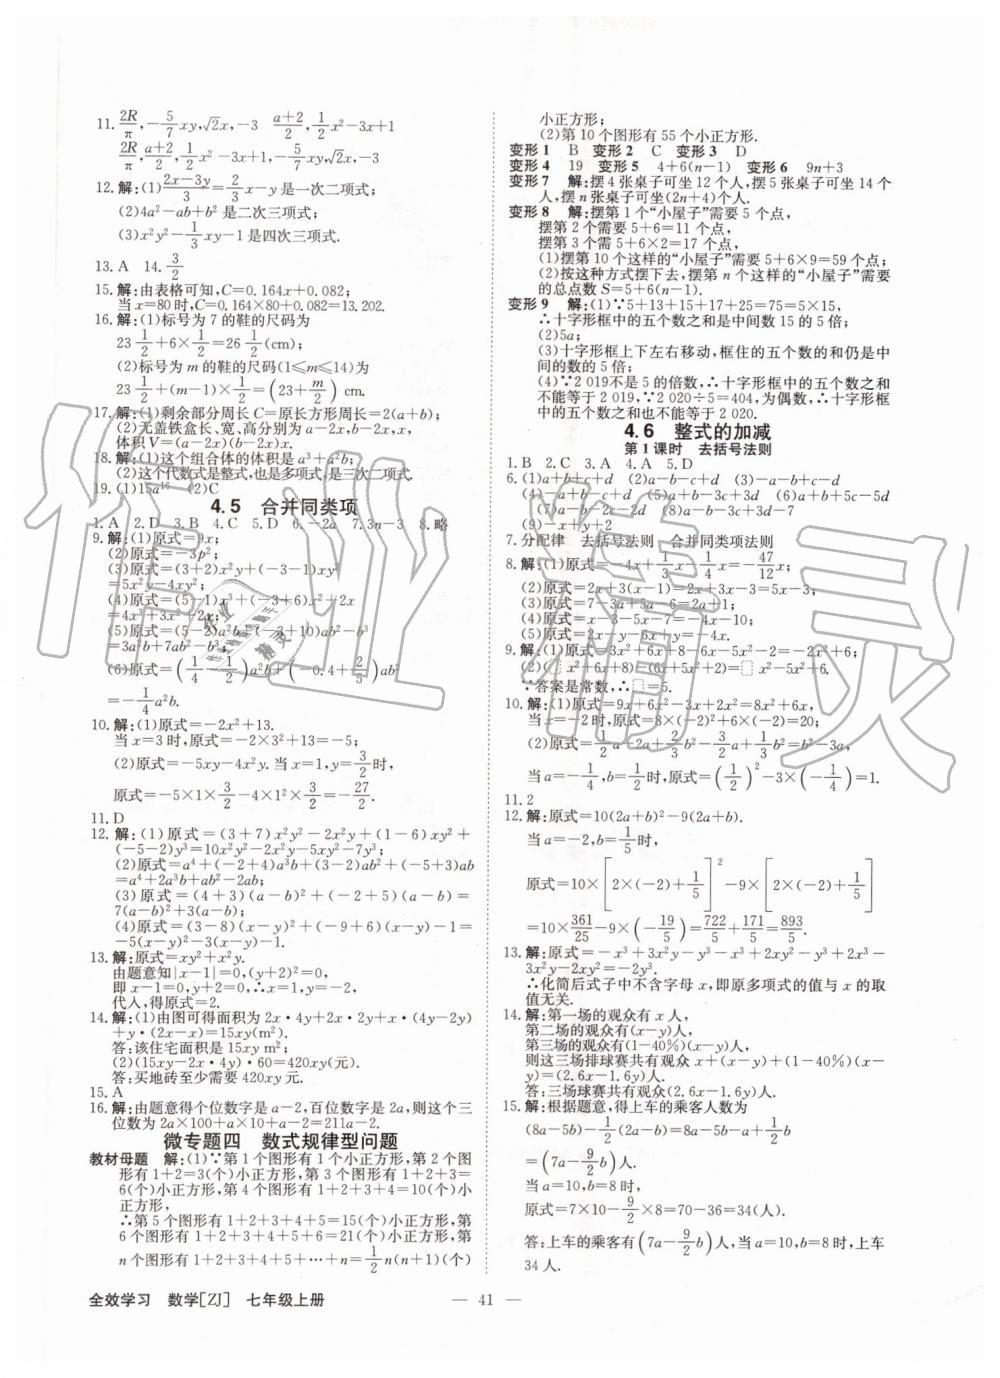 11. 2R/π, -5/7xy, √2x, -3  a+2/2, 1/2x²-3x+1
2R/π, a+2/2, 1/2x²-3x+1, -5/7xy, √2x, -3
12. 解:(1)2x-3y/3=2/3x-y是一次二项式;
(2)4a²-ab+b²是二次三项式;
(3)x²y²-1/3xy-1是四次三项式.
13. A  14. 3/2
15. 解:由表格可知,C=0.164x+0.082;
当x=80时,C=0.164×80+0.082=13.202.
16. 解:(1)标号为7的鞋的尺码为
23 1/2+6×1/2=26 1/2(cm);
(2)标号为m的鞋的尺码(1≤m≤14)为
23 1/2+(m-1)×1/2=(23+m/2) cm.
17. 解:(1)剩余部分周长C=原长方形周长=2(a+b);
(2)无盖铁盒长、宽、高分别为a-2x,b-2x,x,
体积V=(a-2x)(b-2x)x.
18. 解:(1)这个组合体的体积是a³+a²b;
(2)这个代数式是整式,也是多项式,是三次二项式.
19. (1)15a¹⁶  (2)C
4.5 合并同类项
1. A  2. D  3. B  4. C  5. D  6. -2a  7. 3n-3  8. 略
9. 解:(1)原式=9x;
(2)原式=-3p²;
(3)原式=(3+2)x²y+(-3-1)xy²
=5x²y-4xy²;
(4)原式=(5-1)x³+(-3+6)x²+2x
=4x³+3x²+2x;
(5)原式=(5-2)a²b+(-3+10)ab²=
3a²b+7ab²;
(6)原式=(1/4-1/2)a²b+(-0.4+2/5)ab²
=-1/4a²b.
10. 解:(1)原式=-2x²+13.
当x=3时,原式=-2×3²+13=-5;
(2)原式=-5xy-4x².当x=1,y=3/2时,
原式=-5×1×3/2-4×1²×3/2=-27/2.
11. D
12. 解:(1)原式=(3+7)x²y²-2x²y+(1-6)xy²+
(-5-2)y³=10x²y²-2x²y-5xy²-7y³;
(2)原式=a⁴+(-2+4)a³b+(3-2)ab²+(-5+3)ab
=a⁴+2a³b+ab²-2ab;
(3)原式=(4+3)(a-b)²+(-2+5)(a-b)=
7(a-b)²+3(a-b);
(4)原式=(3-8)(x-y)²+(-9+6)(x-y)-1=
-5(x-y)²-3(x-y)-1.
13. 解:原式=xy²+x²y.
由题意知|x-1|=0,(y+2)²=0,
即x-1=0,y+2=0,∴x=1,y=-2,
代入,得原式=2.
14. 解:(1)由图可得面积为2x·4y+2x·x·(4y-2y)
+y·(2x-x)=15xy(m²).
答:该住宅面积是15xy m²;
(2)(15xy-2x·4y)·60=420xy(元).
答:买地砖至少需要420xy元.
15. A
16. 解:由题意得个位数字是a-2,百位数字是2a,则这个三
位数为2a×100+a×10+a-2=211a-2.
微专题四 数式规律型问题
教材母题 解:(1)∵第1个图形有1个小正方形,第2个图
形有1+2=3(个)小正方形,第3个图形有1+2+3=
6(个)小正方形,第4个图形有1+2+3+4=10(个)小
正方形,
∴第5个图形有1+2+3+4+5=15(个)小正方形,第
6个图形有1+2+3+4+5+6=21(个)小正方形,第
n个图形有1+2+3+4+5+…+n=1/2n(n+1)(个)
小正方形;
(2)第10个图形有55个小正方形.
变形1 B  变形2 C  变形3 D
变形4 19  变形5 4+6(n-1)  变形6 9n+3
变形7 解:摆4张桌子可坐12个人,摆5张桌子可坐14个
人,摆n张桌子可坐(2n+4)个人.
变形8 解:摆第1个“小屋子”需要5个点,
摆第2个需要5+6=11个点,
摆第3个需5+6×2=17个点,
(1)摆第10个这样的“小屋子”需要5+6×9=59个点;
(2)按这种方式摆下去,摆第n个这样的“小屋子”需要
的总点数S=5+6(n-1).
变形9 解:(1)∵5+13+15+17+25=75=5×15,
∴十字形框中的五个数之和是中间数15的5倍;
(2)5a;
(3)十字形框上下左右移动,框住的五个数的和仍是中
间数的5倍;
(4)∵2 019不是5的倍数,∴十字形框中的五个数之和
不能等于2 019,∵2 020÷5=404,为偶数,∴十字形框
中的五个数之和也不能等于2 020.
4.6 整式的加减
第1课时 去括号法则
1. B  2. C  3. A  4. A  5. D
6. (1)a+b-c+d  (2)a-b-c+d  (3)-a-b+c-d
(4)-a+b+c-d  (5)a+b+c-d  (6)-a+b+5c-5d
(7)-2a-2b+6c-2d  (8)a-b+3c-3d-7
(9)-x+y+2
7. 分配律 去括号法则 合并同类项法则
8. 解:(1)原式=-4x+1/3x-1/4x=-47/12x;
(2)原式=2x+3(x-1)=2x+3x-3=5x-3;
(3)原式=7-3a+1-2a=8-5a;
(4)原式=2x-y-6x+y=-4x.
9. 解:(1)原式=3x²+6x+8-6x-5x²-2=-2x²+6;
(2)(□x²+6x+8)-(6x+5x²+2)=□x²-5x²+6.
∵答案是常数,∴□=5.
10. 解:(1)原式=9x+6x²-3x+2x²=8x²+6x,
当x=-2时,原式=8×(-2)²+6×(-2)=20;
(2)原式=1/2a-2a+2/3b²-3/2a+1/3b²=b²-3a,
当a=-1/4,b=1/2时,原式=(1/2)²-3×(-1/4)=1.
11. 2
12. 解:原式=10(2a+b)²-9(2a+b).
当a=-2,b=1/5时,
原式=10×[2×(-2)+1/5]²-9×[2×(-2)+1/5]
=10×361/25-9×(-19/5)=722/5+171/5=893/5.
13. 解:原式=-x³+3x²y-y³-x³+2xy²-y³+2x³-
3x²y-2xy²=-2y³.
∴化简后式子中不含字母x,即原多项式的值与x的取
值无关.
14. 解:第一场的观众有x人,
第二场的观众有(x-y)人,
第三场的观众有(1-40%)(x-y)人,
则这三场排球赛共有观众x+(x-y)+(1-40%)(x-
y)=(2.6x-1.6y)人.
答:三场球赛共有观众(2.6x-1.6y)人.
15. 解:根据题意,得上车的乘客人数为
(8a-5b)-1/2(6a-2b)=8a-5b-1/2a+b
=(7a-9/2b)人.
当a=10,b=8时,
原式=7×10-9/2×8=70-36=34(人).
答:上车的乘客有(7a-9/2b)人,当a=10,b=8时,上车
34人.
全效学习 数学[ZJ] 七年级上册
— 41 —
作业精灵